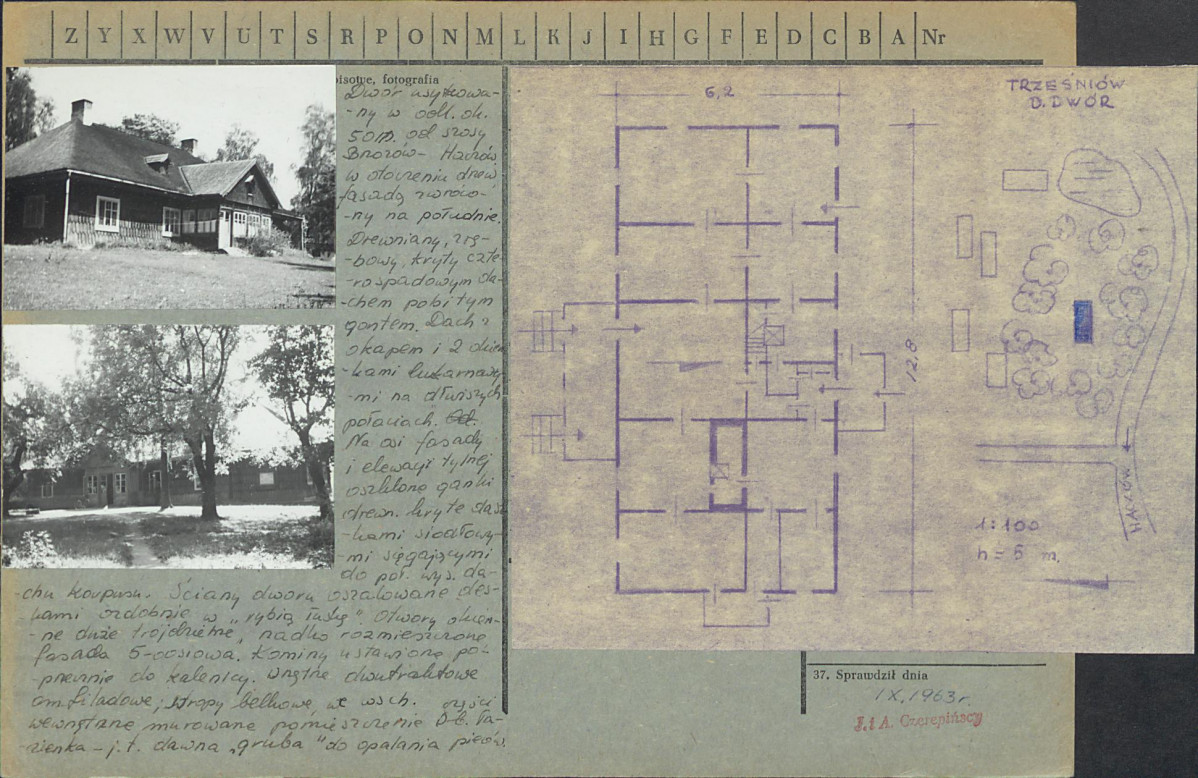 Z Y X W V U T S R P O N M L K J I H G F E D C B A Nr
fotografia
Dwór usytuowa-
-ny w odl. ok.
50 m. od szosy
Brzozów - Haczów
w otoczeniu drzew
fasadą zwróco-
-ny na południe.
Drewniany, zrę-
bowy, kryty czte-
-rospadowym da-
-chem pobitym
gontem. Dach z
okapem i 2 okien
-kami lukarnowy-
-mi na dłuższych
połaciach.
Na osi fasady
i elewacji tylnej
oszklone ganki
drewn. kryte dasz
-kami siodłowy-
-mi sięgającymi
do poł. wys. da-
-chu korpusu. Ściany dworu oszalowane des-
-kami ozdobnie w "rybią łuskę". Otwory okien-
-ne duże trójdzielne, rzadko rozmieszczone
fasada 5-osiowa. Kominy ustawione po-
-przecznie do kalenicy. Wnętrze dwutraktowe
amfiladowe; stropy belkowe, we wsch. części
wewnętrzne murowane pomieszczenie D-b. ła-
-zienka - j.t. dawna "gruba" do opalania pieców.
TRZEŚNIÓW
D. DWÓR
6,2
12.8
HACZÓW
1:100
h = 5 m.
37. Sprawdził dnia
IX. 1963 r.
J. i A. Czerepińscy